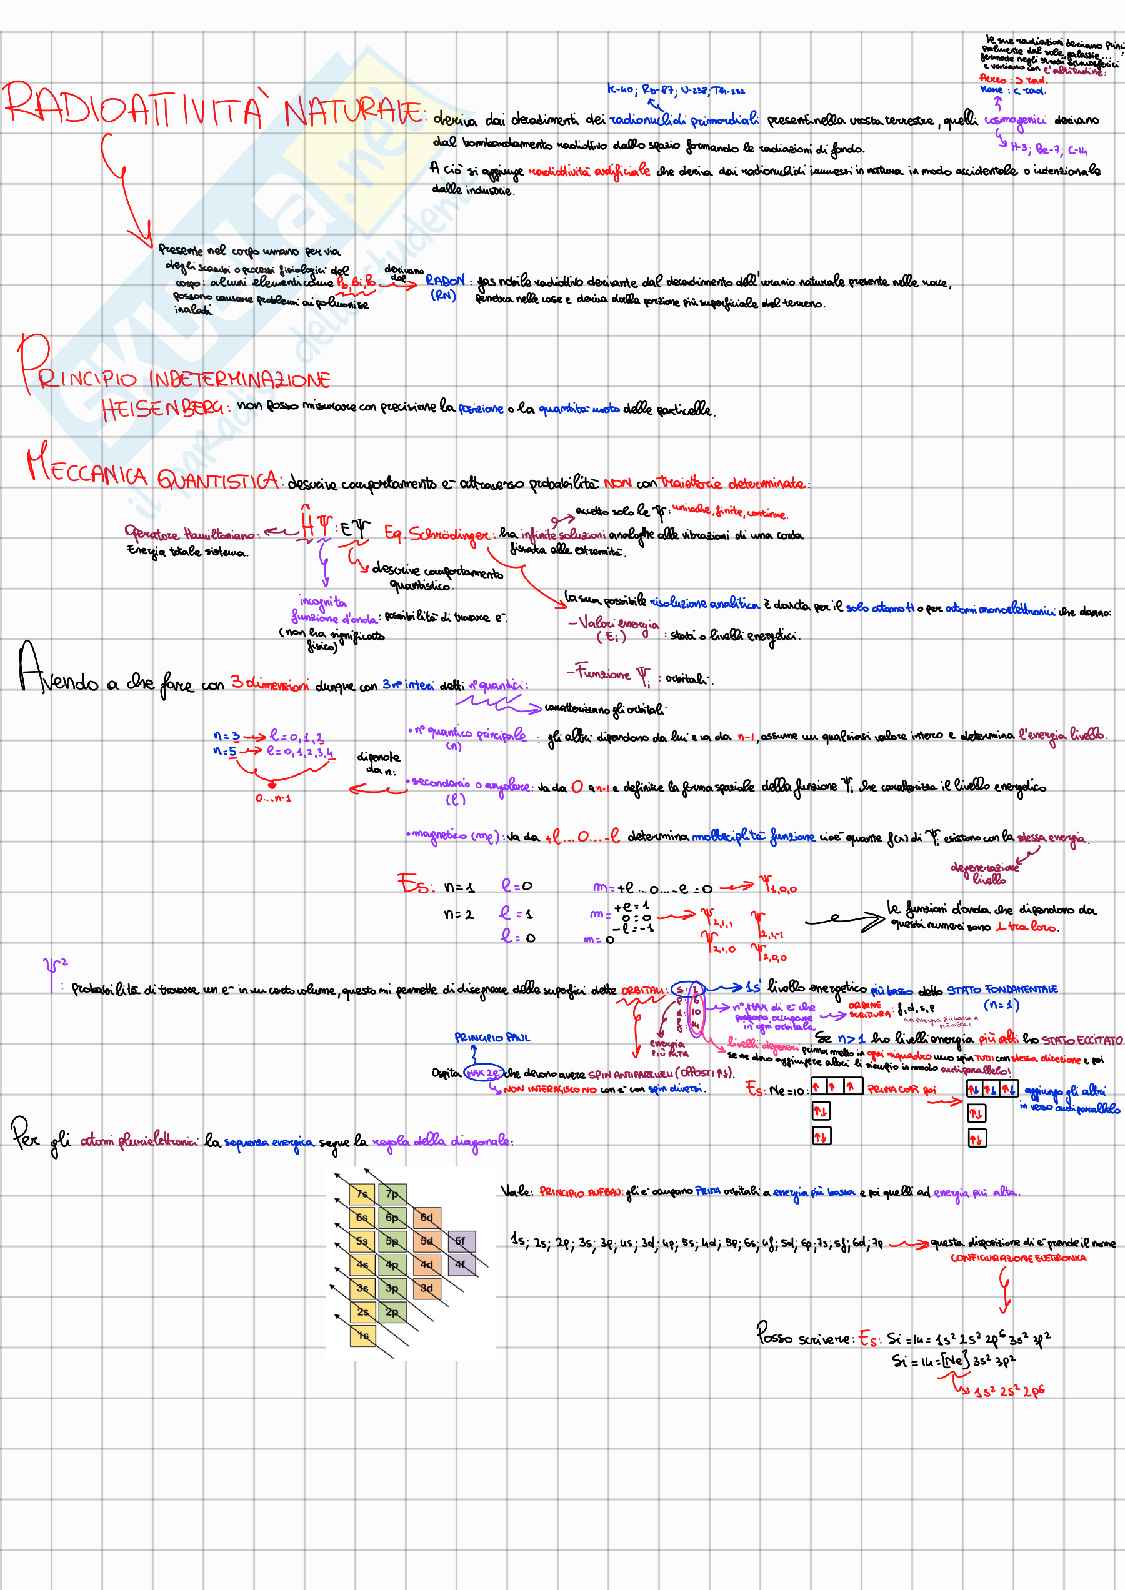 le sue radiazioni derivano prin
cipalmente dal sole, galassie...
formate negli strati atmosferici
e variano con l'altitudine:
Aereo: > rad.
mare: < rad.
K-40; Rb-87; U-238; Th-232
RADIOATTIVITÀ NATURALE: deriva dai decadimenti dei radionuclidi primordiali presenti nella crosta terrestre, quelli cosmogenici derivano
dal bombardamento radiattivo dallo spazio formando le radiazioni di fondo.
H-3; Be-7; C-14
A ciò si aggiunge radiattività artificiale che deriva dai radionuclidi immessi in natura in modo accidentale o intenzionale
dalle industrie.
Presente nel corpo umano per via
degli scambi o processi fisiologici del
corpo: alcuni elementi come Pb, Bi, Po
possono causare problemi ai polmoni se
inalati
derivano
dal
RADON: gas nobile radiattivo derivante dal decadimento dell'uranio naturale presente nelle rocce,
(RN) penetra nelle case e deriva dalla porzione più superficiale del terreno.
PRINCIPIO INDETERMINAZIONE
HEISENBERG: non posso misurare con precisione la posizione o la quantità moto delle particelle.
MECCANICA QUANTISTICA: descrive comportamento e⁻ attraverso probabilità NON con traiettorie determinate:
accetto solo le Ψ: univoche, finite, continue.
Operatore Hamiltoniano:
Energia totale sistema.
ĤΨ: EΨ Eq. Schrödinger: ha infinite soluzioni analoghe alle vibrazioni di una corda
fissata alle estremità.
descrive comportamento
quantistico.
incognita
funzione d'onda: possibilità di trovare e⁻
(non ha significato
fisico)
La sua possibile risoluzione analitica è dovuta per il solo atomo H o per atomi monoelettronici che danno:
- Valori energia
(Ei) : stati o livelli energetici.
- Funzione Ψi : orbitali.
Avendo a che fare con 3 dimensioni dunque con 3 n° interi detti n° quantici:
caratterizzano gli orbitali
n=3 → l=0,1,2
n=5 → l=0,1,2,3,4
0...n-1
dipende
da n:
• n° quantico principale : gli altri dipendono da lui e va da n-1, assume un qualsiasi valore intero e determina l'energia livello.
(n)
• secondario o angolare: va da 0 a n-1 e definisce la forma spaziale della funzione Ψ, che caratterizza il livello energetico
(l)
• magnetico (ml): va da +l...0...-l determina molteplicità funzione cioè quante f(x) di Ψ esistono con la stessa energia.
degenerazione
livello
Es: n=1 l=0 m=+l...0...-l = 0 → Ψ1,0,0
n=2 l=1 m= +l=1 0=0 -l=-1 → Ψ2,1,1 Ψ2,1,-1
l=0 m=0 Ψ2,1,0 Ψ2,0,0
Le funzioni d'onda che dipendono da
questi numeri sono ⊥ tra loro.
Ψ²
: probabilità di trovare un e⁻ in un certo volume, questo mi permette di disegnare delle superfici dette ORBITALI: s:2 → 1s livello energetico più basso detto STATO FONDAMENTALE
(n=1)
p: 6
d: 10
f: 14
ENERGIA
PIÙ ALTA
n° MAX di e⁻ che
possono occupare
in ogni orbitale
ORDINE
SCRITTURA: f, d, s, p
Se n>1 ho livelli energia più alti ho STATO ECCITATO
livelli degeneri: prima metto in ogni riquadro uno spin TUTTI con stessa direzione e poi
se ne devo aggiungere altri li riempio in modo antiparallelo!
PRINCIPIO PAULI
Ospita MAX 2e⁻ che devono avere SPIN ANTIPARALLELI (OPPOSTI ↑↓).
NON INTERAGISCONO con e⁻ con spin diversi.
Es: Ne=10: PRIMA COSÌ poi aggiungo gli altri
in verso antiparallelo
Per gli atomi plurielettronici la sequenza energica segue la regola della diagonale:
7s 7p
6s 6p 6d
5s 5p 5d 5f
4s 4p 4d 4f
3s 3p 3d
2s 2p
1s
Vale: PRINCIPIO AUFBAU: gli e⁻ occupano PRIMA orbitali a energia più bassa e poi quelli ad energia più alta.
1s; 2s; 2p; 3s; 3p; 4s; 3d; 4p; 5s; 4d; 5p; 6s; 4f; 5d; 6p; 7s; 5f; 6d; 7p → questa disposizione di e⁻ prende il nome
CONFIGURAZIONE ELETTRONICA
Posso scrivere: Es: Si=14= 1s² 2s² 2p⁶ 3s² 3p²
Si=14=[Ne] 3s² 3p²
1s² 2s² 2p⁶
SKUOLA.net
il portale dello studente